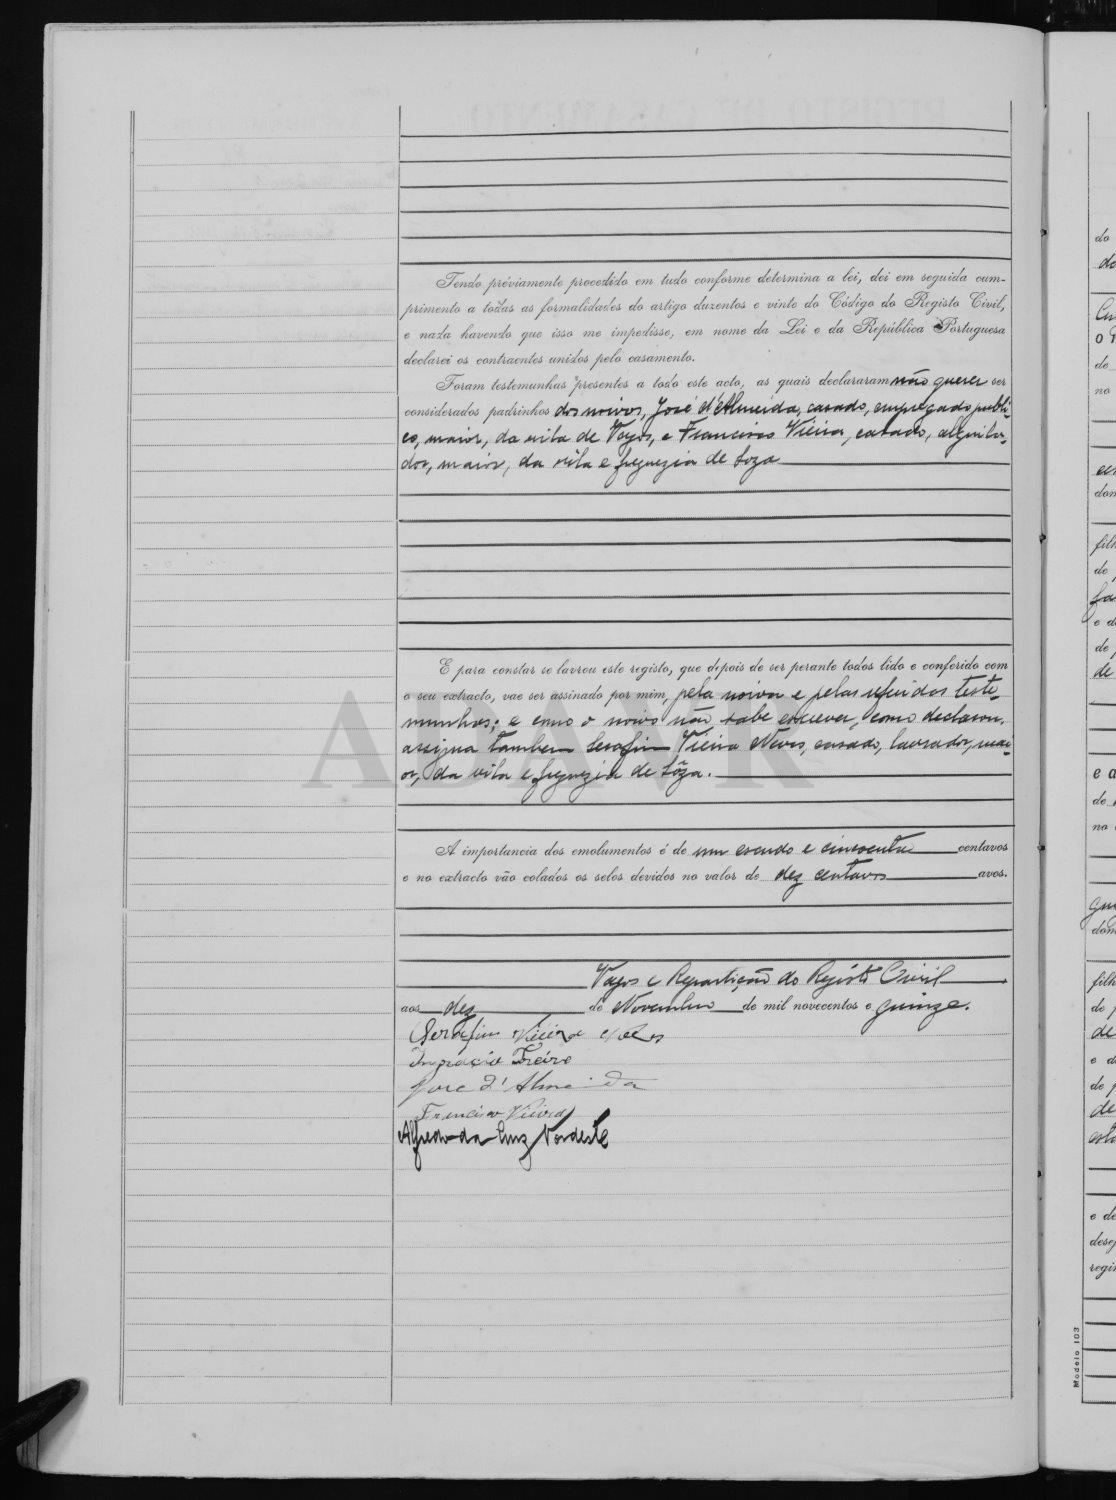 Tendo préviamente procedido em tudo conforme determina a lei, dei em seguida cum-
primento a todas as formalidades do artigo duzentos e vinte do Código do Registo Civil,
e nada havendo que isso me impedisse, em nome da Lei e da República Portuguesa
declarei os contraentes unidos pelo casamento.
Foram testemunhas presentes a todo este acto, as quais declararam não querer ser
considerados padrinhos dos noivos, José d'Almeida, casado, empregado publi-
co, maior, da vila de Vagos, e Francisco Vieira, casado, alquila-
dor, maior, da vila e freguezia de Soza
E para constar se lavrou este registo, que depois de ser perante todos lido e conferido com
o seu extracto, vae ser assinado por mim, pela noiva e pelas referidas teste-
munhas; e como o noivo não sabe escrever, como declarou,
assigna tambem Serafim Vieira Neves, casado, lavrador, mai-
or, da vila e freguezia de Sôza.
A importancia dos emolumentos é de um escudo e cincoenta centavos
e no extracto vão colados os selos devidos no valor de dez centavos avos.
Vagos e Repartição do Registo Civil
aos dez de Novembro de mil novecentos e quinze.
Serafim Vieira Neves
Ingrácia Freire
Jose d'Almeida
Francisco Vieira
Alfredo da Cruz Nordeste
ADAVR
do
de
no
dom
filh
de
e d
de p
de
e a
de
no
dom
filh
de p
de
e d
de p
de
e de
desej
regi
Modelo 103